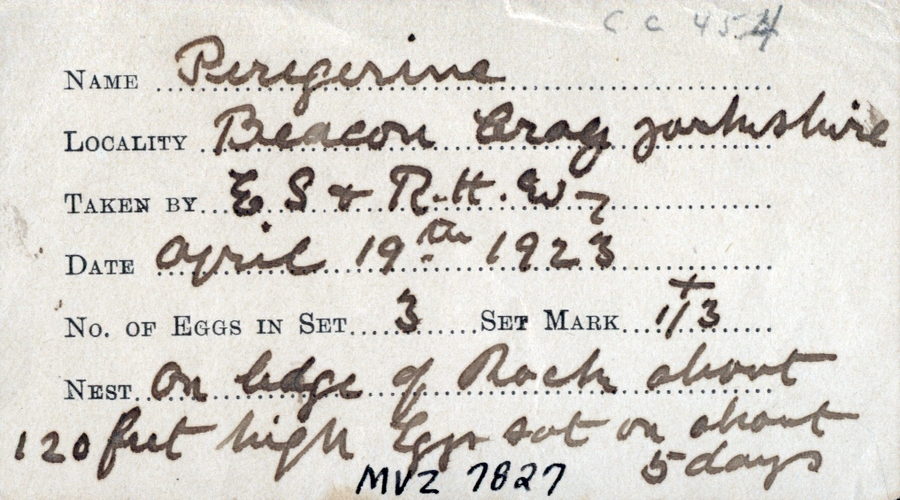 C C 454
NAME Peregerine
LOCALITY Beacon Crag Yorkshire
TAKEN BY E S & R. H. W
DATE April 19th 1923
NO. OF EGGS IN SET 3 SET MARK 1/3
NEST on ledge of Rock about
120 feet high Eggs sat on about
5 days
MVZ 7827